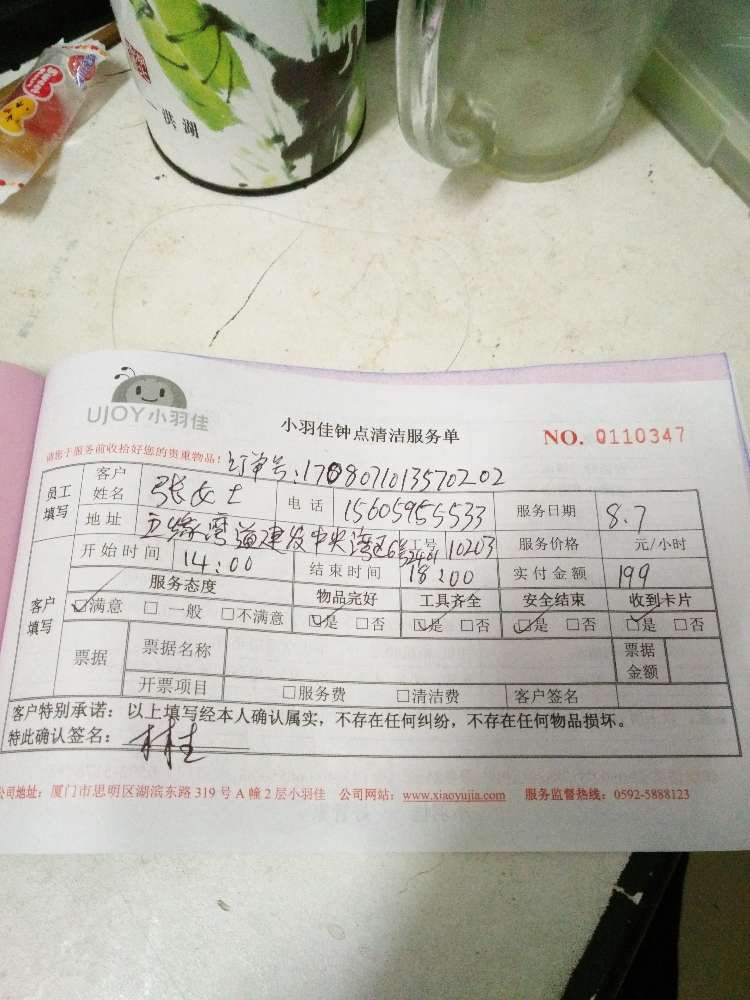 洪湖
UJOY小羽佳
小羽佳钟点清洁服务单
NO. 0110347
请您于服务前收拾好您的贵重物品：
订单号：17080710135702 02
员工填写 客户姓名 张女士 电话 15605955533 服务日期 8.7
地址 五缘湾道建发中央湾区 工号 10203 服务价格 元/小时
客户填写 开始时间 14:00 结束时间 18:00 实付金额 199
服务态度 物品完好 工具齐全 安全结束 收到卡片
☑满意 □一般 □不满意 ☑是 □否 ☑是 □否 ☑是 □否 ☑是 □否
票据 票据名称 票据金额
开票项目 □服务费 □清洁费 客户签名
客户特别承诺：以上填写经本人确认属实，不存在任何纠纷，不存在任何物品损坏。
特此确认签名：
公司地址：厦门市思明区湖滨东路 319 号 A 幢 2 层小羽佳 公司网站：www.xiaoyujia.com 服务监督热线：0592-5888123